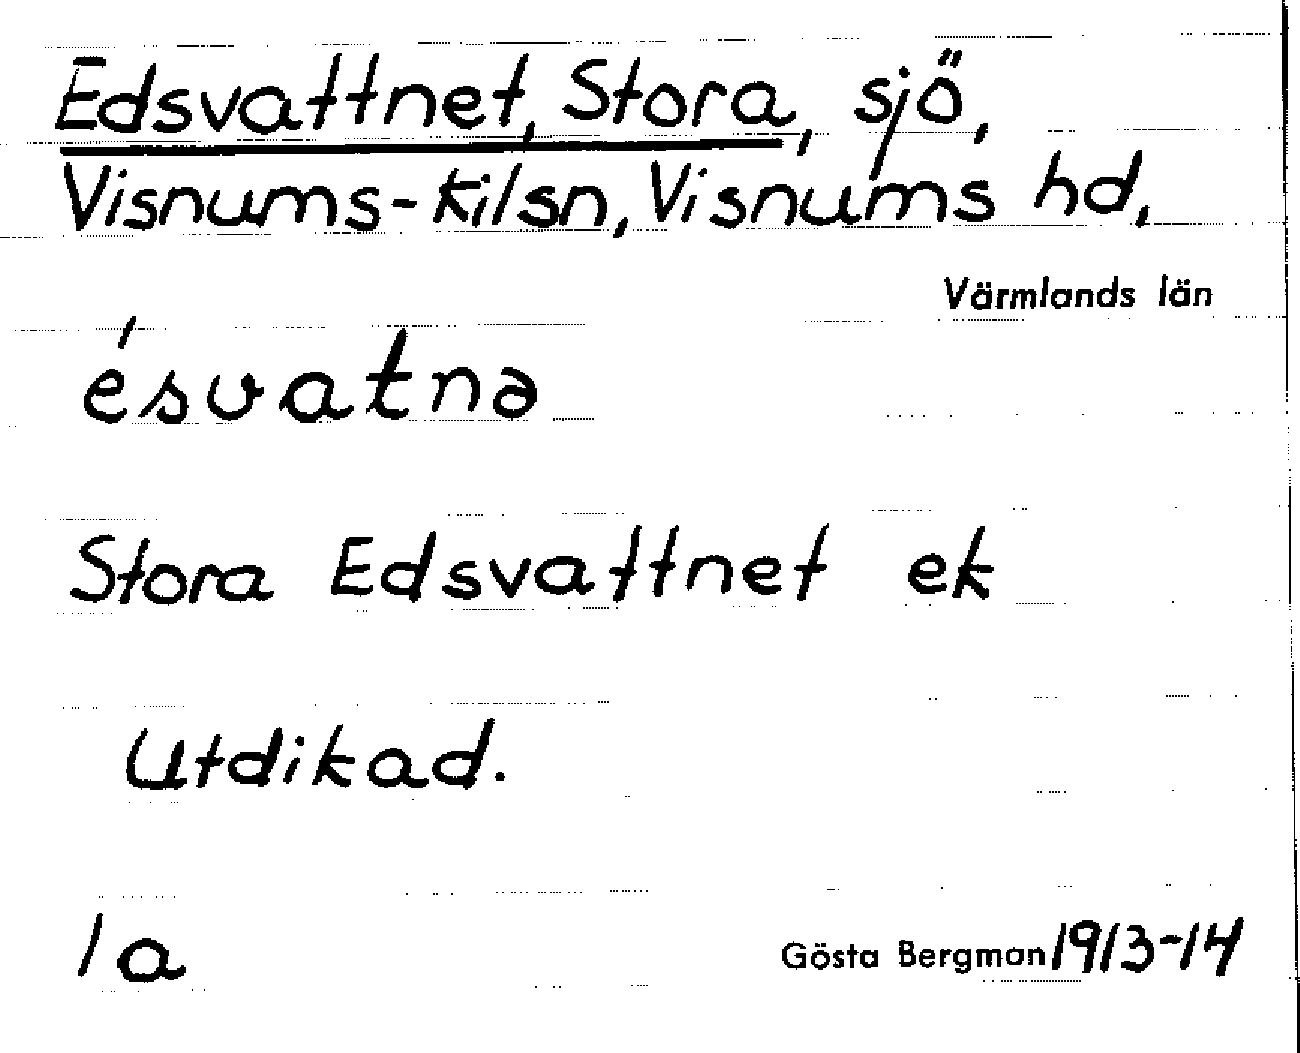 Edsvattnet, Stora, sjö,
Visnums-Kilsn, Visnums hd,
Värmlands län
ésvatnə
Stora Edsvattnet ek
Utdikad.
1a
Gösta Bergman 1913-14